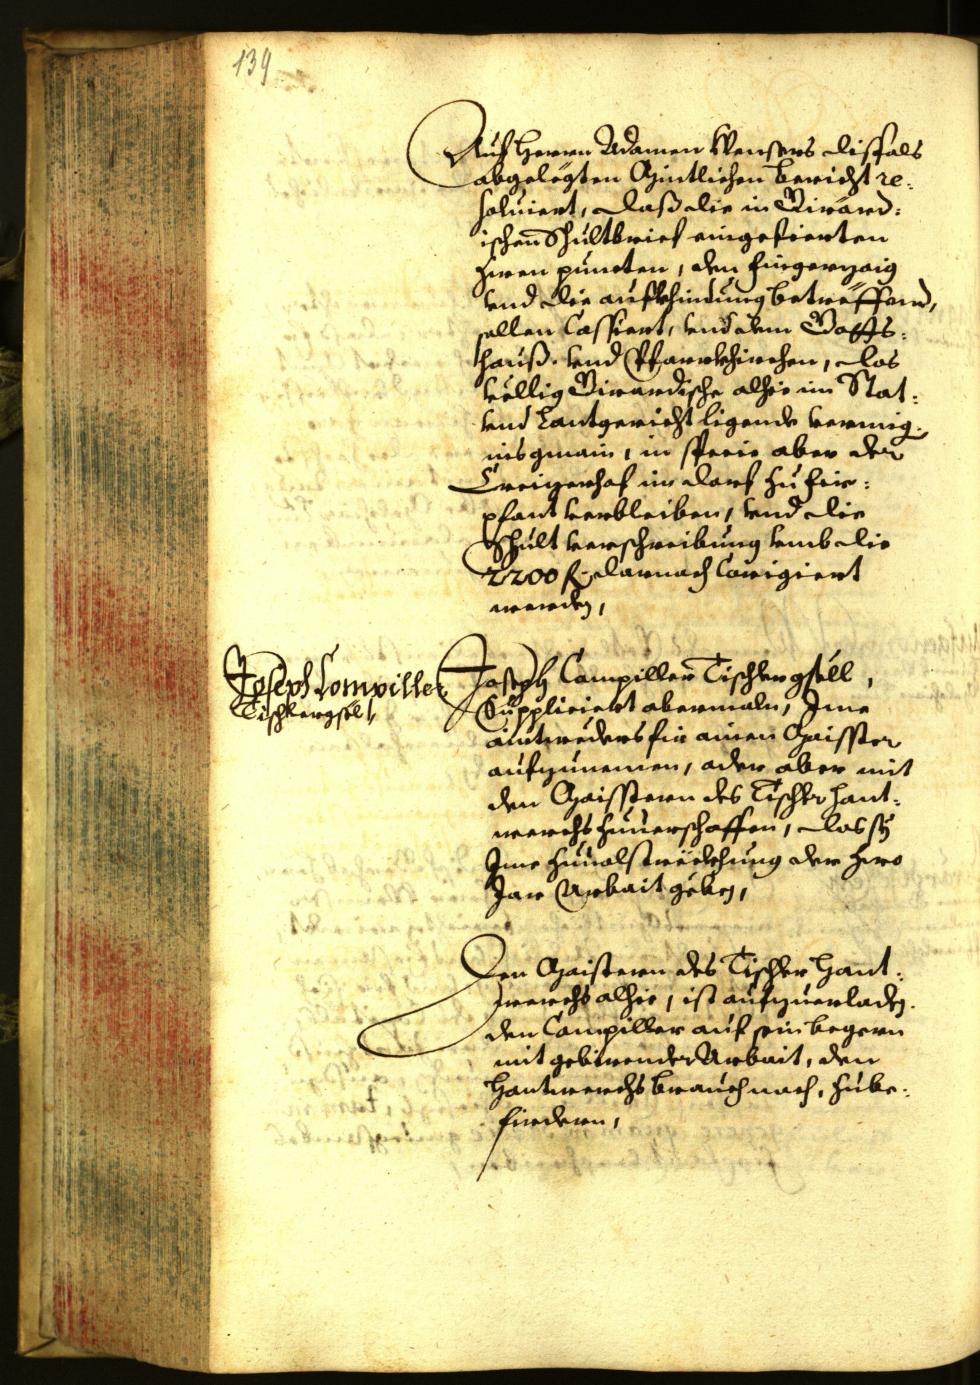 139
Auf Herrn Adamen Wensers dissfals
abgelegten Mintlichen bericht re-
soluiert, daß die in Girard-
ischen Schultbrief eingefierten
zwen puncten, den fürgenzaig
vnd die aufkhindung betreffend,
sollen Cassiert, vnd dem Gotts-
hauß vnd Pfarrkhirchen, das
völlig Girardische alhie im Stat-
vnd Landtgericht ligende vermig-
insgmain, in specie aber der
im dorf zu fir-
pfant verbleiben, vnd die
Schult verschreibung vmb die
2200 f. darnach Corigiert
werden,
Joseph Compiller
Tischlergsöl,
Joseph Compiller Tischlergsöll,
Suppliciert abermaln, Ime
aintweders für ainen Maisster
aufzunemen, oder aber mit
den Maisstern des Tischler hant-
werchs zuuerschaffen, das sy
Ime zuuolstreckhung der zwo
Jar Arbait geben,
Den Maistern des Tischler Hant-
werchs alhie, ist aufzuerladen
den Compiller auf sein begern
mit gebirender Arbait, den
Hantwerchs brauch nach, zube-
firdern,